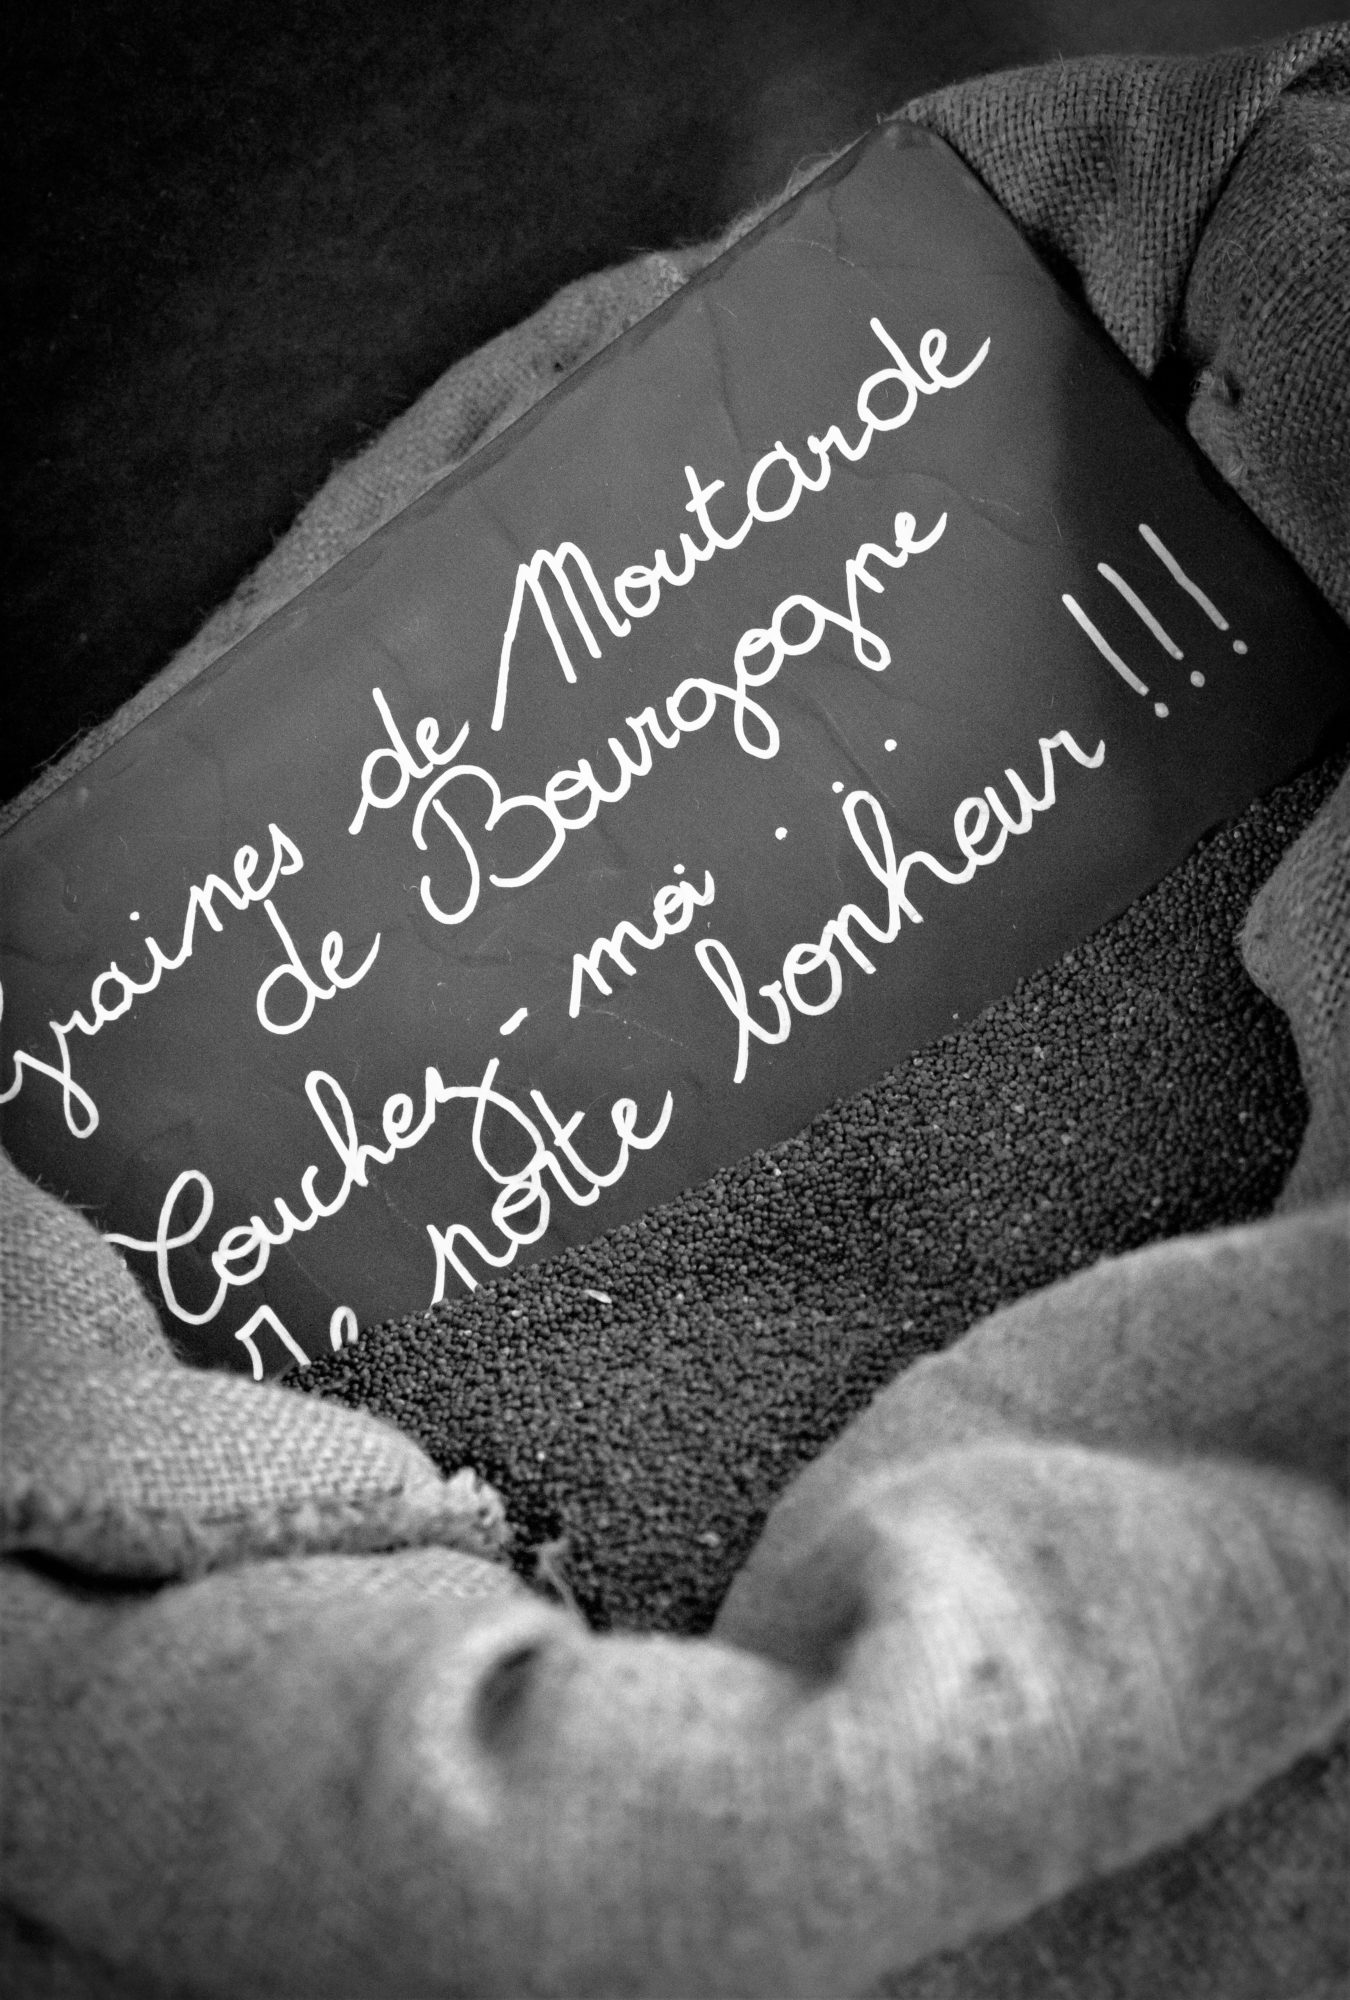 Graines de Moutarde
de Bourgogne
Touchez-moi ...
Je porte bonheur !!!